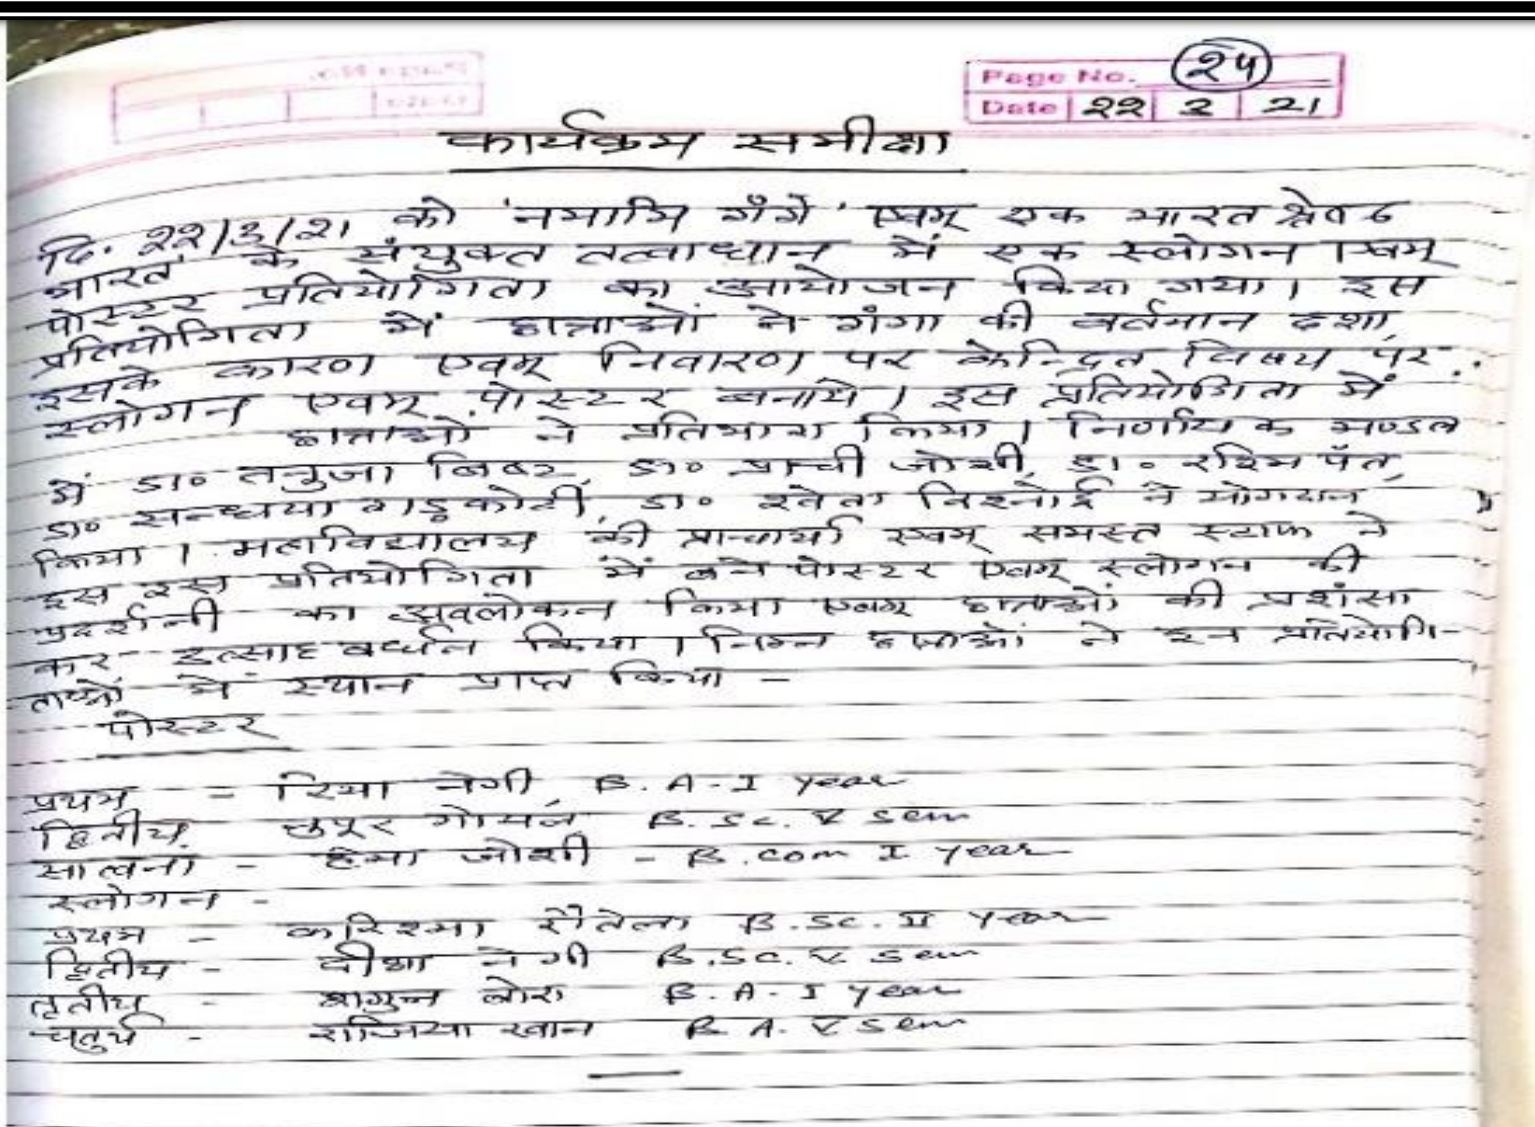 Page No. २५
Date २२ 3 21
कार्यक्रम समीक्षा
दि. २२/3/२1 को 'नमामि गंगे' एवम् एक भारत श्रेष्ठ
भारत के संयुक्त तत्वाधान में एक स्लोगन एवम्
पोस्टर प्रतियोगिता का आयोजन किया गया। इस
प्रतियोगिता में छात्राओं ने गंगा की वर्तमान दशा,
इसके कारण एवम् निवारण पर केन्द्रित विषय पर
स्लोगन एवम् पोस्टर बनाये। इस प्रतियोगिता में
छात्राओं ने प्रतिभाग किया। निर्णायक मण्डल
में डा० तनुजा बिष्ट, डा० प्राची जोशी, डा० रश्मि पंत,
डा० सन्धया गड़कोटी, डा० श्वेता विश्नोई ने योगदान
किया। महाविद्यालय की प्राचार्या एवम् समस्त स्टाफ ने
इस प्रतियोगिता में बने पोस्टर एवम् स्लोगन की
प्रदर्शनी का अवलोकन किया एवम् छात्राओं की प्रशंसा
कर उत्साह वर्धन किया। निम्न छात्राओं ने इन प्रतियोगि-
ताओं में स्थान प्राप्त किया -
पोस्टर
प्रथम - रिया नेगी, B.A-I year
द्वितीय गोयल B.Sc. V sem
सात्वना - हेमा जोशी - B.com I year
स्लोगन -
प्रथम - करिश्मा रौतेला B.Sc. II year
द्वितीय - दीक्षा नेगी B.Sc. V sem
तृतीय - शगुन बोरा B.A-I year
चतुर्थ - राजिया खान B.A. V sem